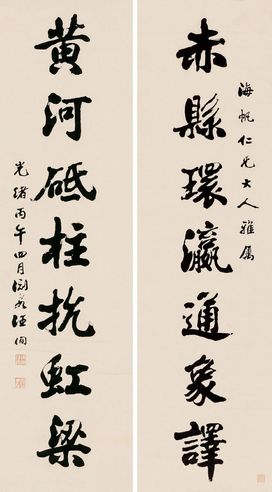 海帆仁兄大人雅屬
赤縣環瀛通象譯
黄河砥柱抗虹梁
光緒丙午四月渊若汪洵